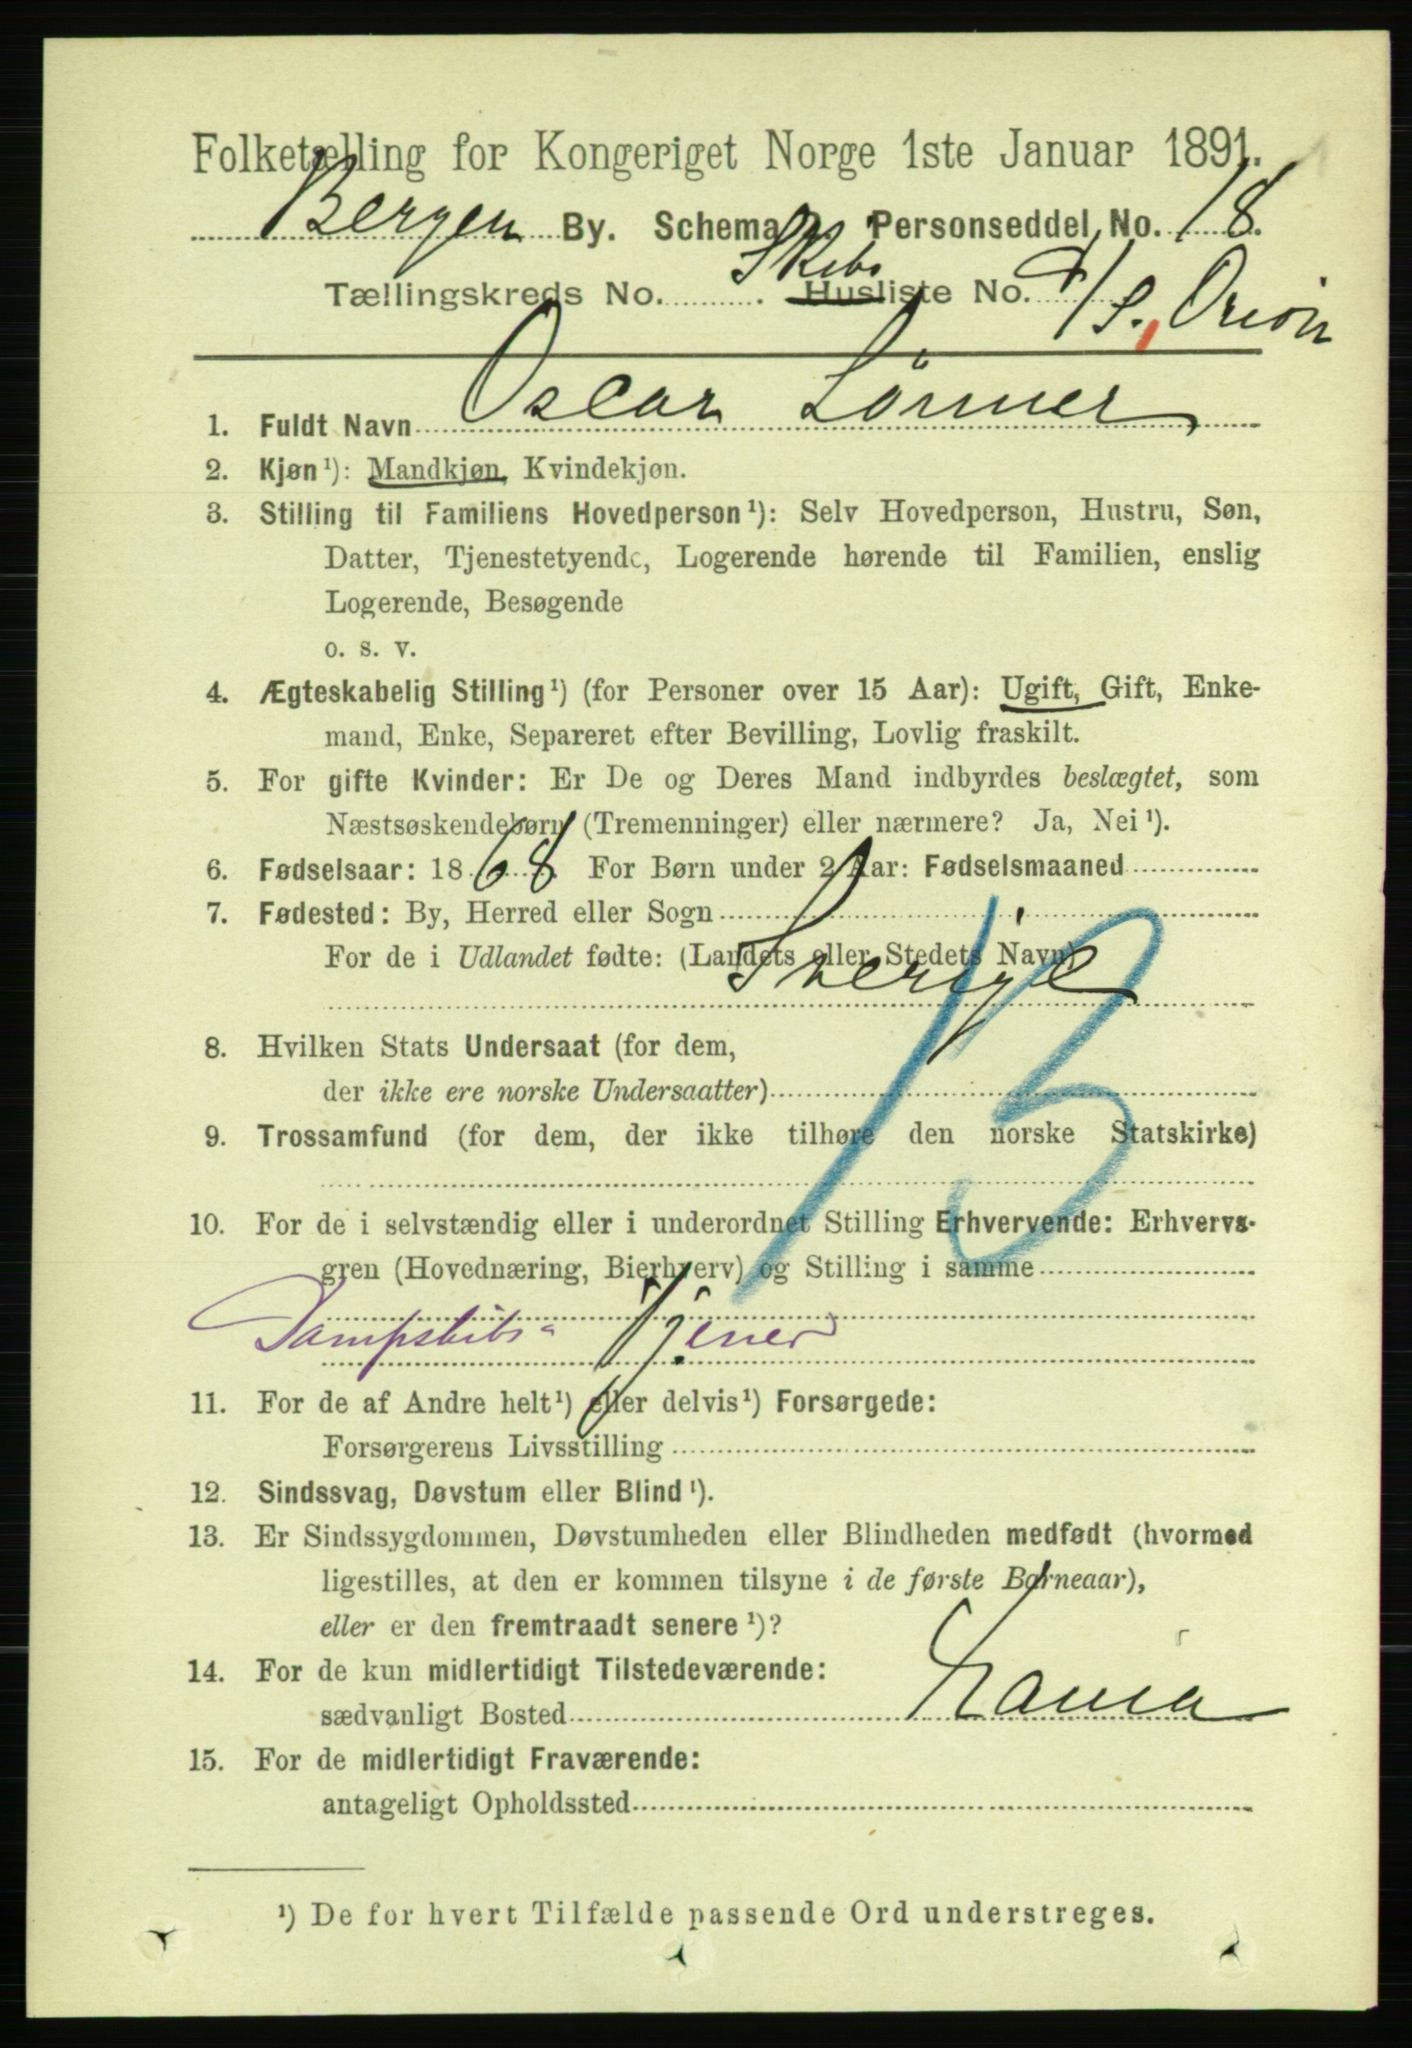 Folketælling for Kongeriget Norge 1ste Januar 1891.
Bergen By. Schema 2. Personseddel No. 18.
Tællingskreds No. . Skibs Husliste No. D/S. Orion
1. Fuldt Navn Oscar
2. Kjøn¹): Mandkjøn, Kvindekjøn.
3. Stilling til Familiens Hovedperson¹): Selv Hovedperson, Hustru, Søn,
Datter, Tjenestetyende, Logerende hørende til Familien, enslig
Logerende, Besøgende
o. s. v.
4. Ægteskabelig Stilling¹) (for Personer over 15 Aar): Ugift, Gift, Enke-
mand, Enke, Separeret efter Bevilling, Lovlig fraskilt.
5. For gifte Kvinder: Er De og Deres Mand indbyrdes beslægtet, som
Næstsøskendebørn (Tremenninger) eller nærmere? Ja, Nei¹).
6. Fødselsaar: 1868 For Børn under 2 Aar: Fødselsmaaned
7. Fødested: By, Herred eller Sogn
For de i Udlandet fødte: (Landets eller Stedets Navn)
Sverige
8. Hvilken Stats Undersaat (for dem,
der ikke ere norske Undersaatter)
13
9. Trossamfund (for dem, der ikke tilhøre den norske Statskirke)
10. For de i selvstændig eller i underordnet Stilling Erhvervende: Erhvervs-
gren (Hovednæring, Bierhverv) og Stilling i samme
Dampskibs- Tjener
11. For de af Andre helt¹) eller delvis¹) Forsørgede:
Forsørgerens Livsstilling
12. Sindssvag, Døvstum eller Blind¹).
13. Er Sindssygdommen, Døvstumheden eller Blindheden medfødt (hvormed
ligestilles, at den er kommen tilsyne i de første Barneaar),
eller er den fremtraadt senere¹)?
14. For de kun midlertidigt Tilstedeværende:
sædvanligt Bosted
15. For de midlertidigt Fraværende:
antageligt Opholdssted
¹) De for hvert Tilfælde passende Ord understreges.